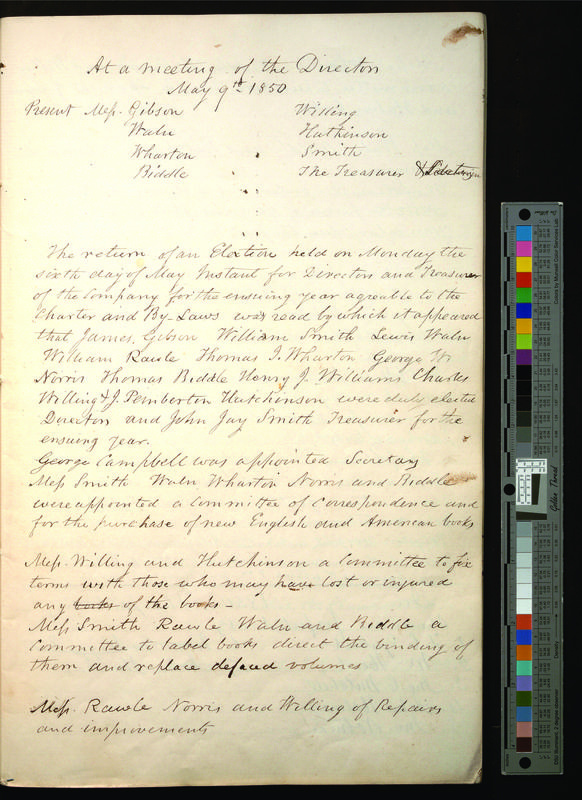 At a meeting of the Directors
May 9th 1850
Present Mess. Gibson Willing
Waln Hutchinson
Wharton Smith
Biddle The Treasurer &
The return of an Election held on Monday the
sixth day of May Instant for Directors and Treasurer
of the Company for the ensuing year agreable to the
Charter and By-Laws was read by which it appeared
that James Gibson William Smith Lewis Waln
William Rawle Thomas I. Wharton George W
Norris Thomas Biddle Henry J. Williams Charles
Willing & J. Pemberton Hutchinson were duly elected
Directors and John Jay Smith Treasurer for the
ensuing year.
George Campbell was appointed Secretary
Mess Smith Waln Wharton Norris and Biddle
were appointed a Committee of Correspondence and
for the purchase of new English and American books
Mess. Willing and Hutchinson a Committee to fix
terms with those who may have lost or injured
any books of the books -
Mess Smith Rawle Waln and Biddle a
Committee to label books direct the binding of
them and replace defaced volumes
Mess. Rawle Norris and Willing of Repairs
and improvements
Golden Thread